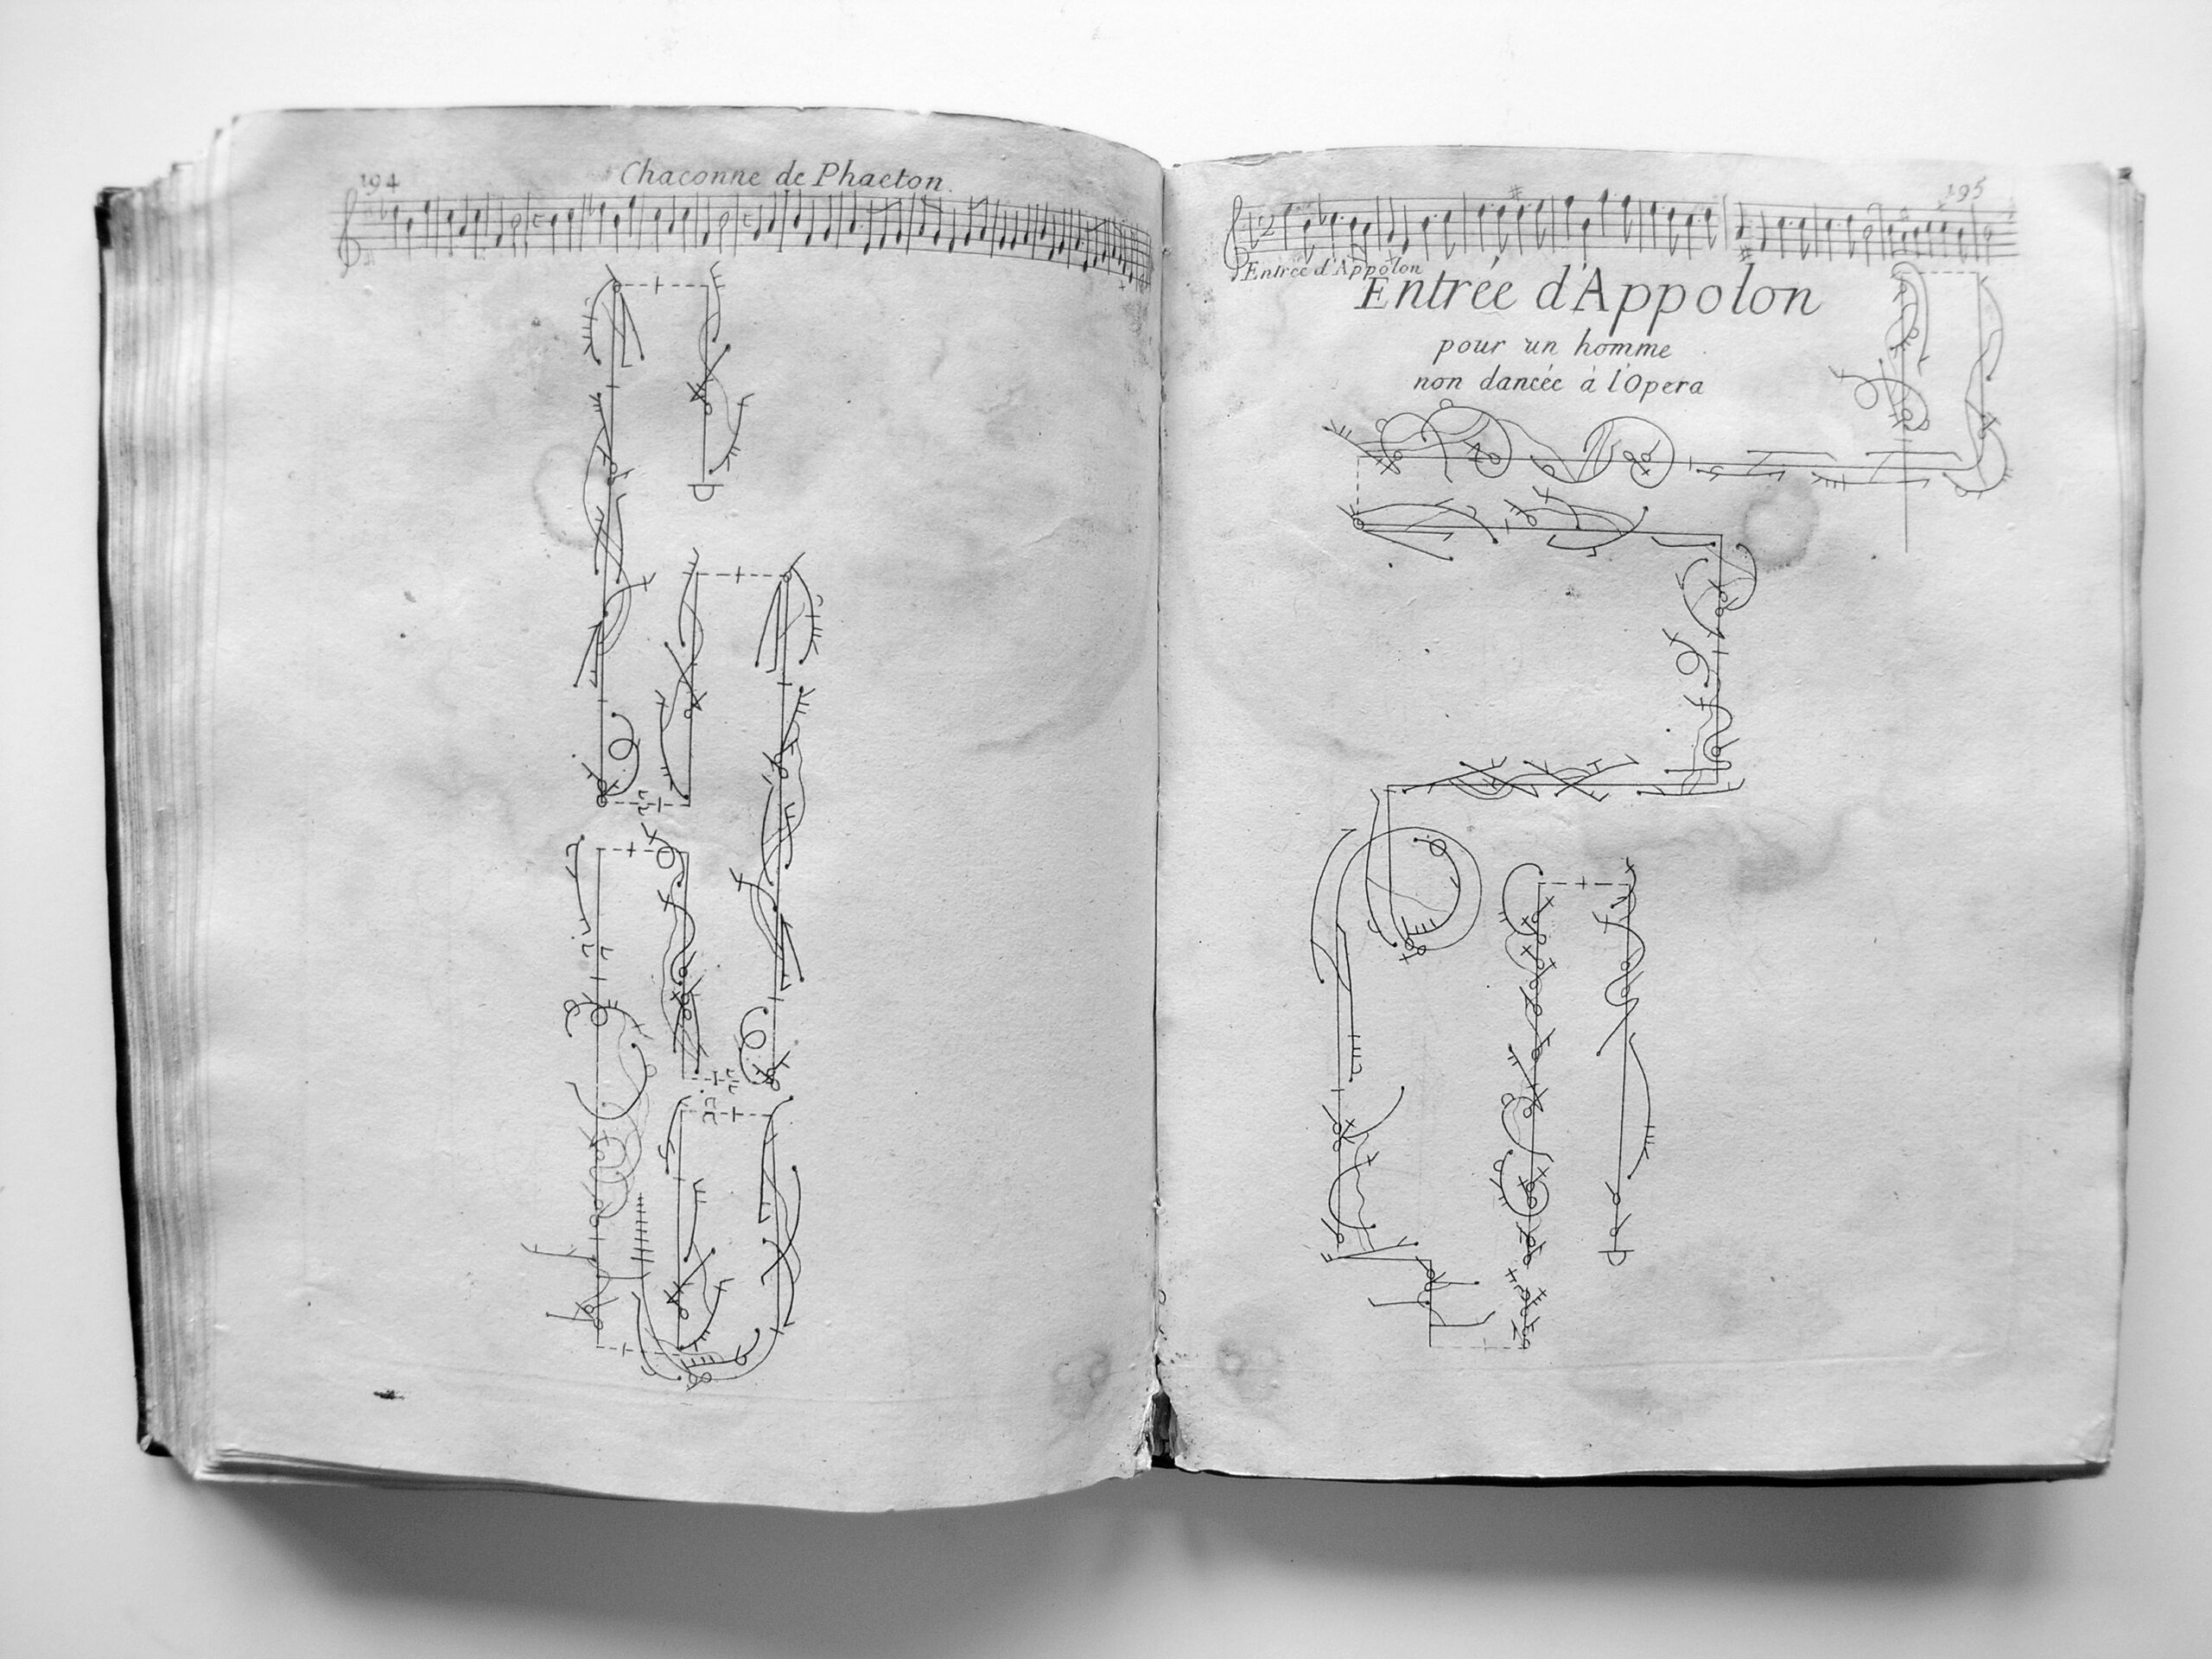 194
Chaconne de Phaeton.
195
Entrée d'Appolon
Entrée d'Appolon
pour un homme
non dancée à l'Opera